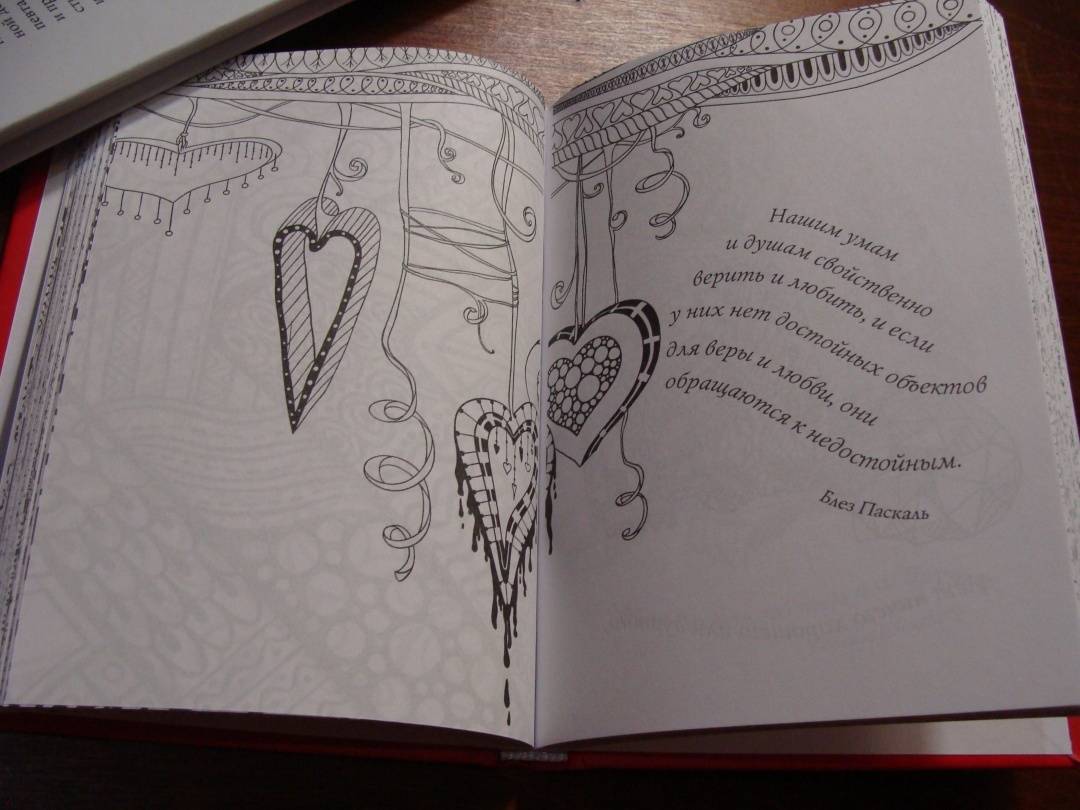 Нашим умам
и душам свойственно
верить и любить, и если
у них нет достойных объектов
для веры и любви, они
обращаются к недостойным.
Блез Паскаль